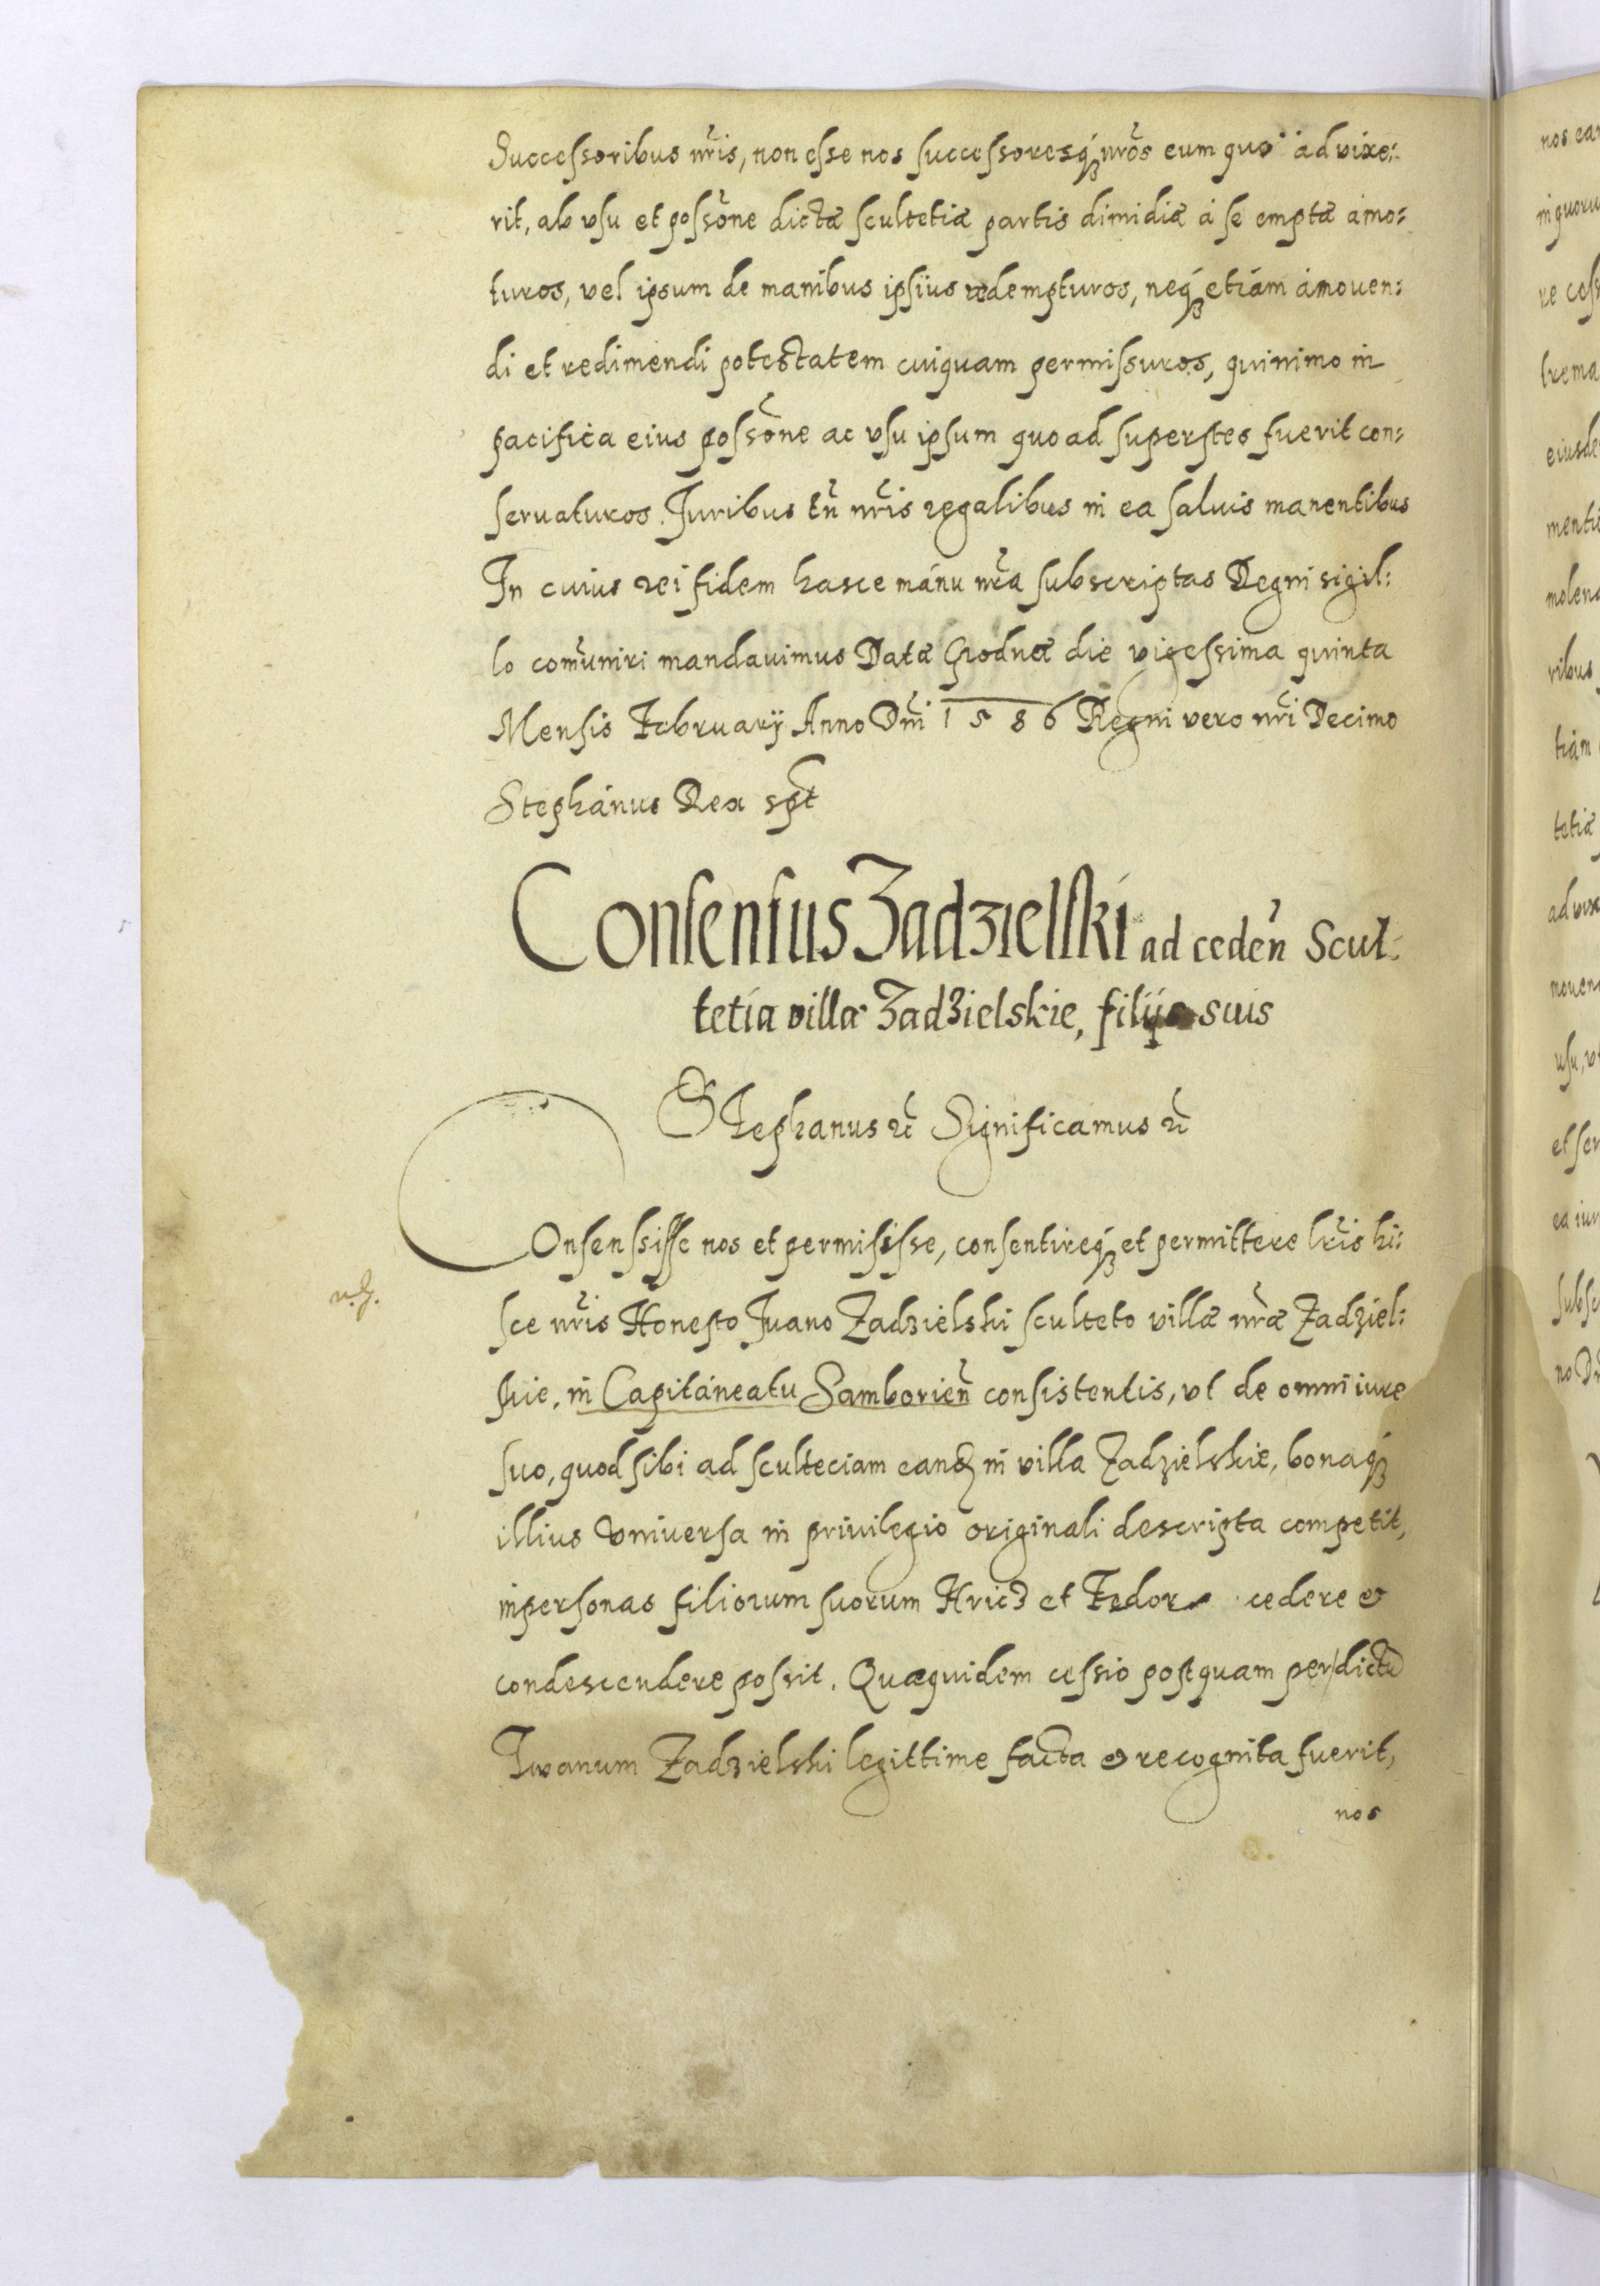 Successoribus nris, non esse nos successoresq nros eum quo ad vixe:
rit, ab vsu et possone dictæ scultetiæ partis dimidiæ á se emptæ amo:
turos, vel ipsum de manibus ipsius redempturos, neq etiám ámouen:
di et redimendi potestatem cuiquam permissuros, quinimo in
pacifica eius possone ac vsu ipsum quoad superstes fuerit con:
seruaturos. Iuribus tn nris regalibus in ea saluis manentibus
In cuius rei fidem hasce mánu nra subscriptas Regni sigil:
lo comuniri mandauimus Datæ Grodnæ die vigessima quinta
Mensis February Anno Dni 1586 Regni vero nri Decimo
Stephánus Rex spt
Consensus Zadzielski ad ceden Scul:
tetia villæ Zadzielskie, filijs suis
Stephanus rc Significamus rc
COnsensisse nos et permisisse, consentireq et permittere lris hi:
sce nris Honesto Iuano Zadzielski sculteto villæ nræ Zadziel:
skie, in Capitáneatu Samborien consistentis, vt de omni iure
suo, quod sibi ad sculteciam eand in villa Zadzielskie, bonaq
illius vniversa in privilegio originali descripta competit,
in personas filiorum suorum Hricz et Fedor cedere et
condescendere possit. Quæquidem cessio postquam per dictu
Iwanum Zadzielski legittime facta et recognita fuerit,
nos